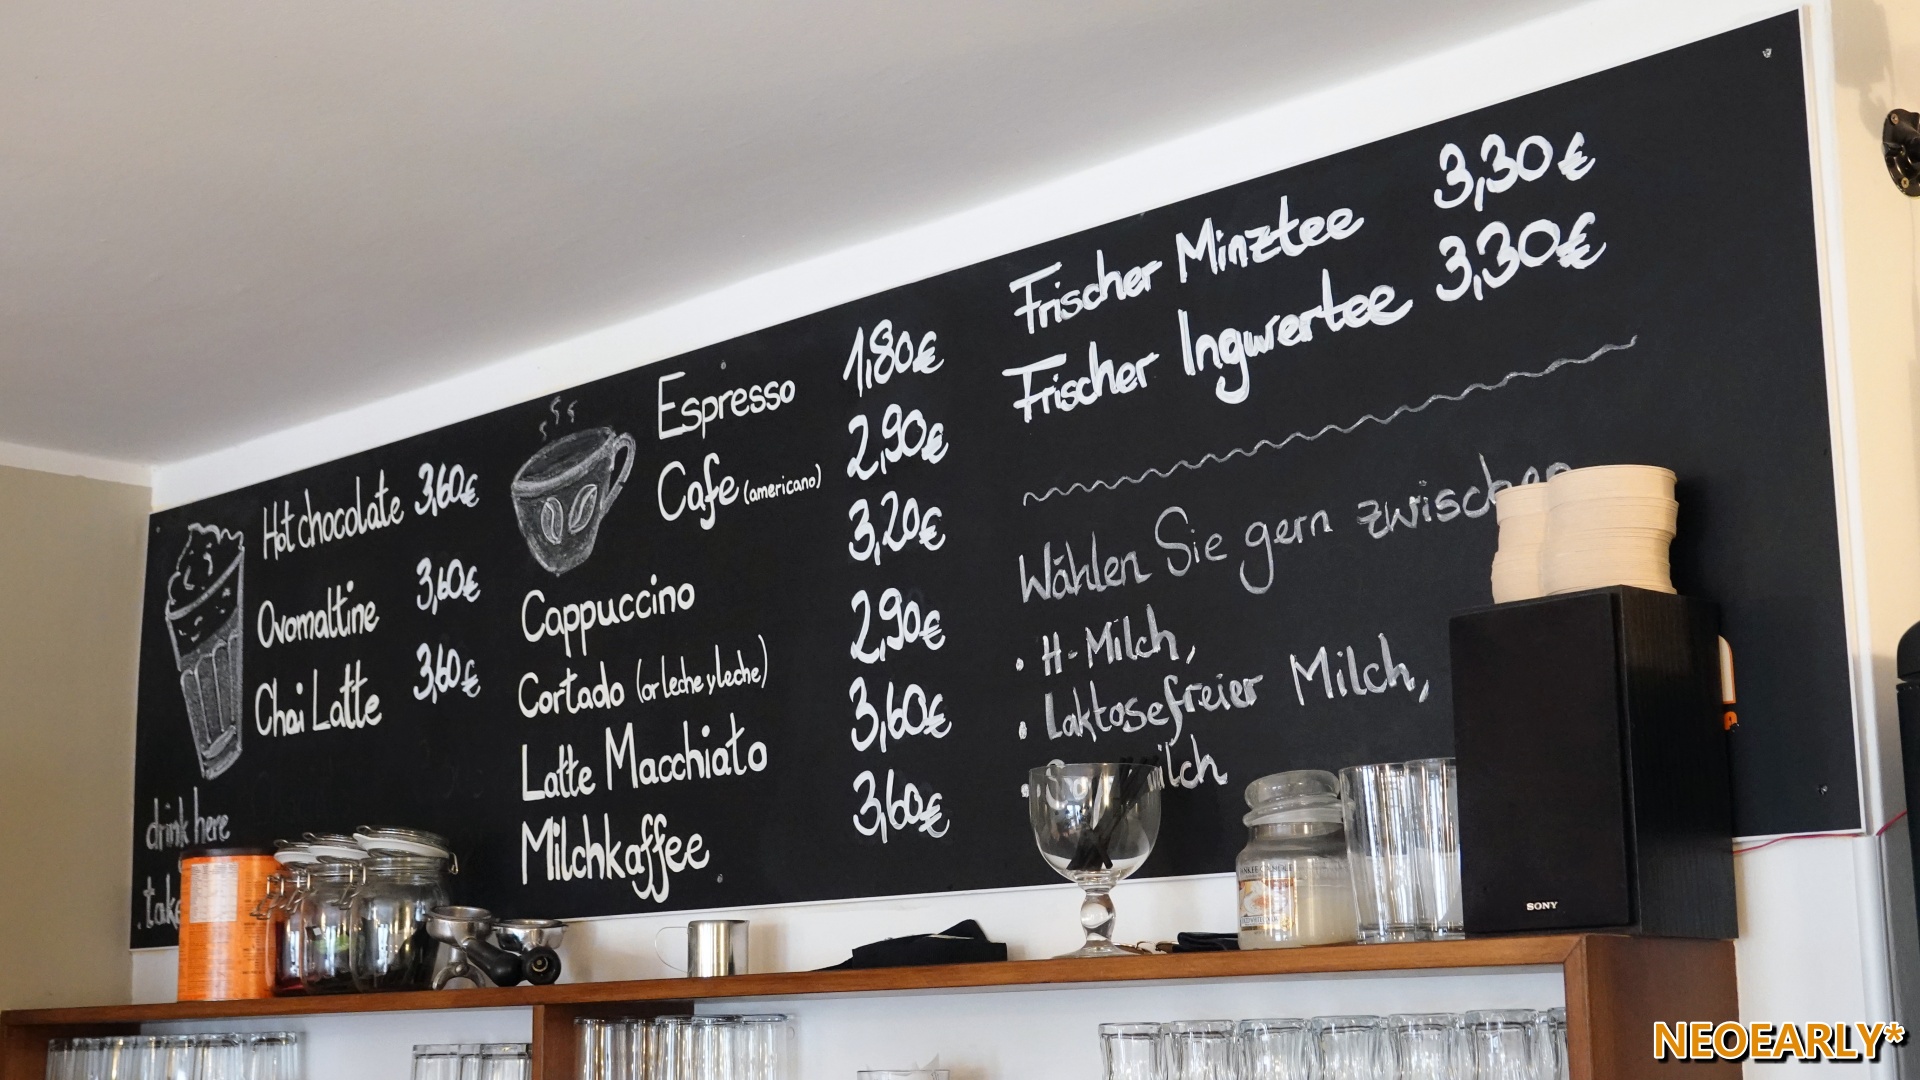 Hot chocolate 3,60€
Ovomaltine 3,60€
Chai Latte 3,60€
drink here
take
Espresso 1,80€
Cafe (americano) 2,90€
Cappuccino 3,20€
Cortado (or leche y leche) 2,90€
Latte Macchiato 3,60€
Milchkaffee 3,60€
Frischer Minztee 3,30€
Frischer Ingwertee 3,30€
Wählen Sie gern zwischen
• H-Milch,
• Laktosefreier Milch,
SONY
NEOEARLY*